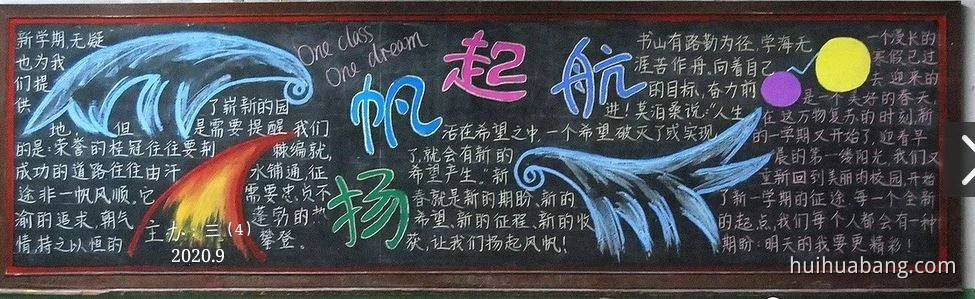 新学期,无疑
也为我
们提
供
了崭新的园
地, 但 是需要提醒我们
的是:荣誉的桂冠往往要荆 棘编就,
成功的道路往往由汗 水铺通,征
途非一帆风顺。它 需要忠贞不
渝的追求,朝气 蓬勃的热
情,持之以恒的 攀登。
主办:三(4)
2020.9
One class
One dream
扬
帆
起
航
书山有路勤为径,学海无
涯苦作舟。向着自己
的目标,奋力前
进!莫泊桑说:“人生
活在希望之中一个希望破灭了或实现
了,就会有新的
希望产生。”新
春就是新的期盼、新的
希望、新的征程、新的收
获,让我们扬起风帆!
一个漫长的
寒假已过
去,迎来的
是一个美好的春天,
在这万物复苏的时刻,新
的一学期又开始了,迎着早
晨的第一缕阳光,我们又
重新回到美丽的校园,开始
了新一学期的征途。每一个全新
的起点,我们每个人都会有一种
期盼:明天的我要更精彩!
huihuabang.com